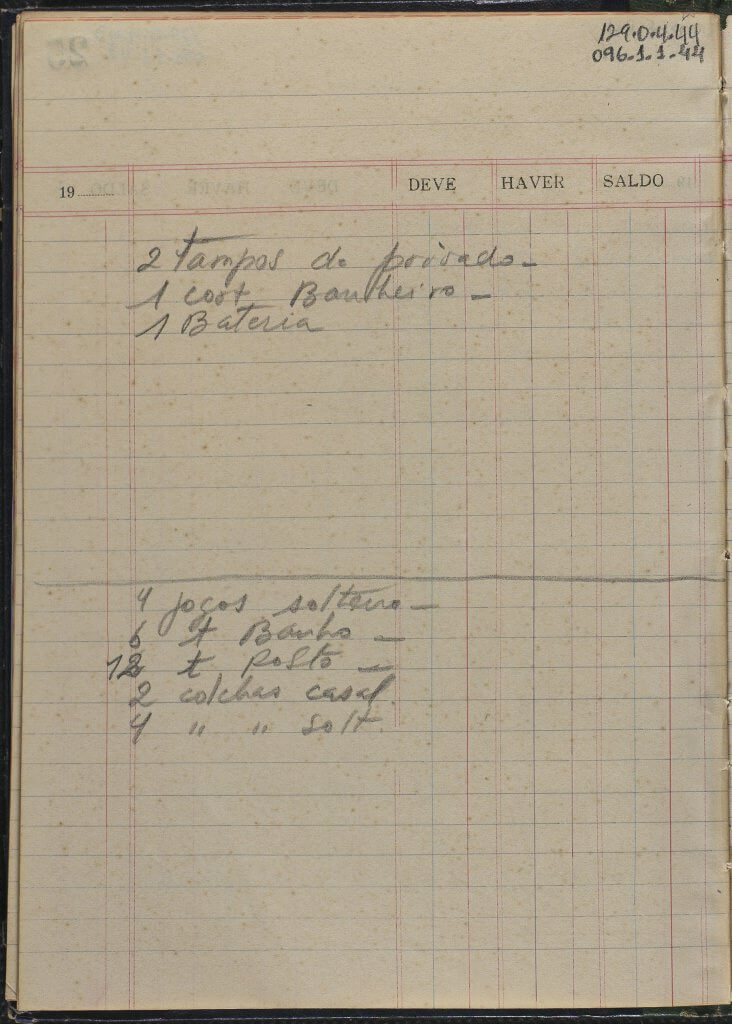 129.0.4.44
096.1.1.44
19 DEVE HAVER SALDO
2 Tampos de privada -
1 cort Banheiro -
1 Bateria
4 jogos solteiro -
6 t Banho -
12 t Rosto -
2 colchas casal.
4 " " solt.